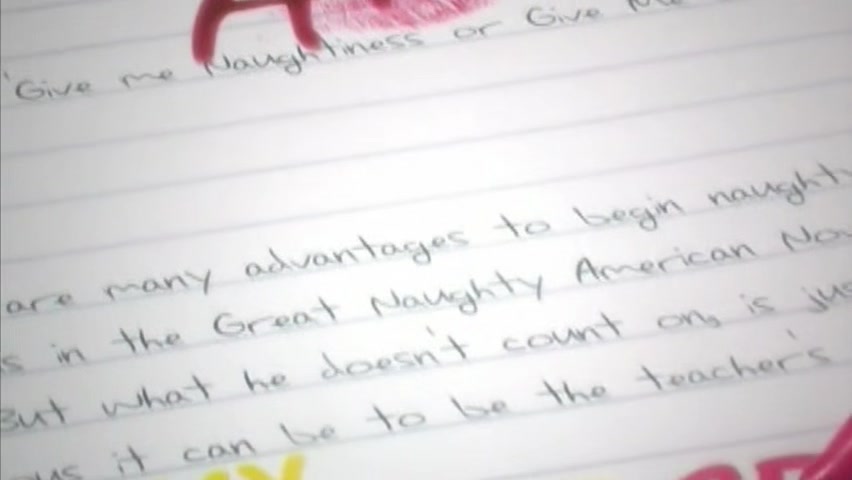 A
'Give me Naughtiness or Give Me
are many advantages to begin naught
s in the Great Naughty American No
But what he doesn't count on, is jus
ous it can be to be the teacher's